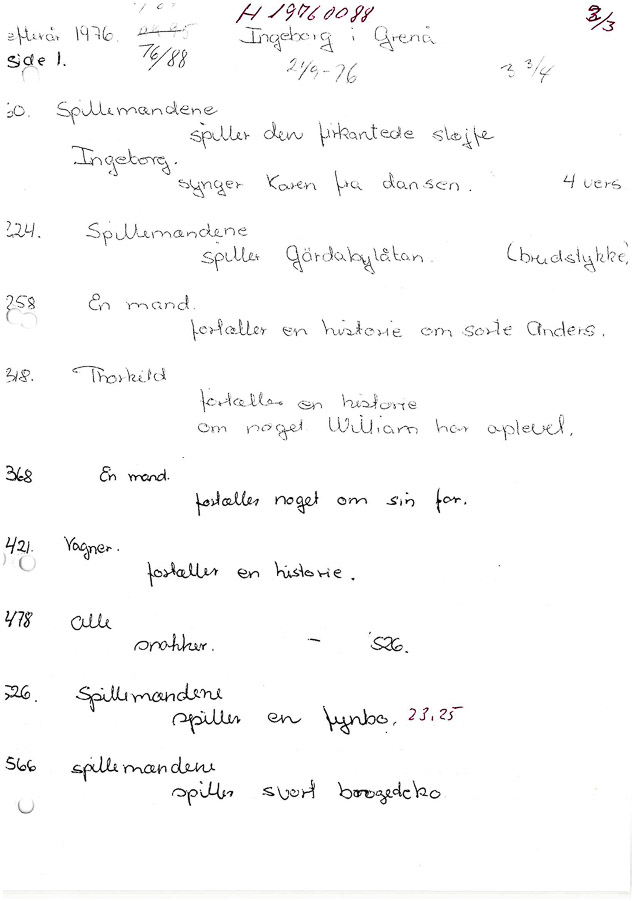 H 19760088 2/3
efterår 1976. Ingeborg i Grenå
side 1. 76/88 21/9-76 3 3/4
50. Spillemændene
spiller den firkantede sløjfe
Ingeborg.
synger Karen fra dansen. 4 vers
224. Spillemændene
spiller Gärdebylåtan. (brudstykke)
258 En mand.
fortæller en historie om sorte Anders.
318. Thorkild
fortæller en historie
om noget William har oplevet.
368 En mand.
fortæller noget om sin far.
421. Vagner.
fortæller en historie.
478 alle
snakker. - 526.
526. Spillemændene
spiller en fynbo. 23.25
566 spillemændene
spiller svort